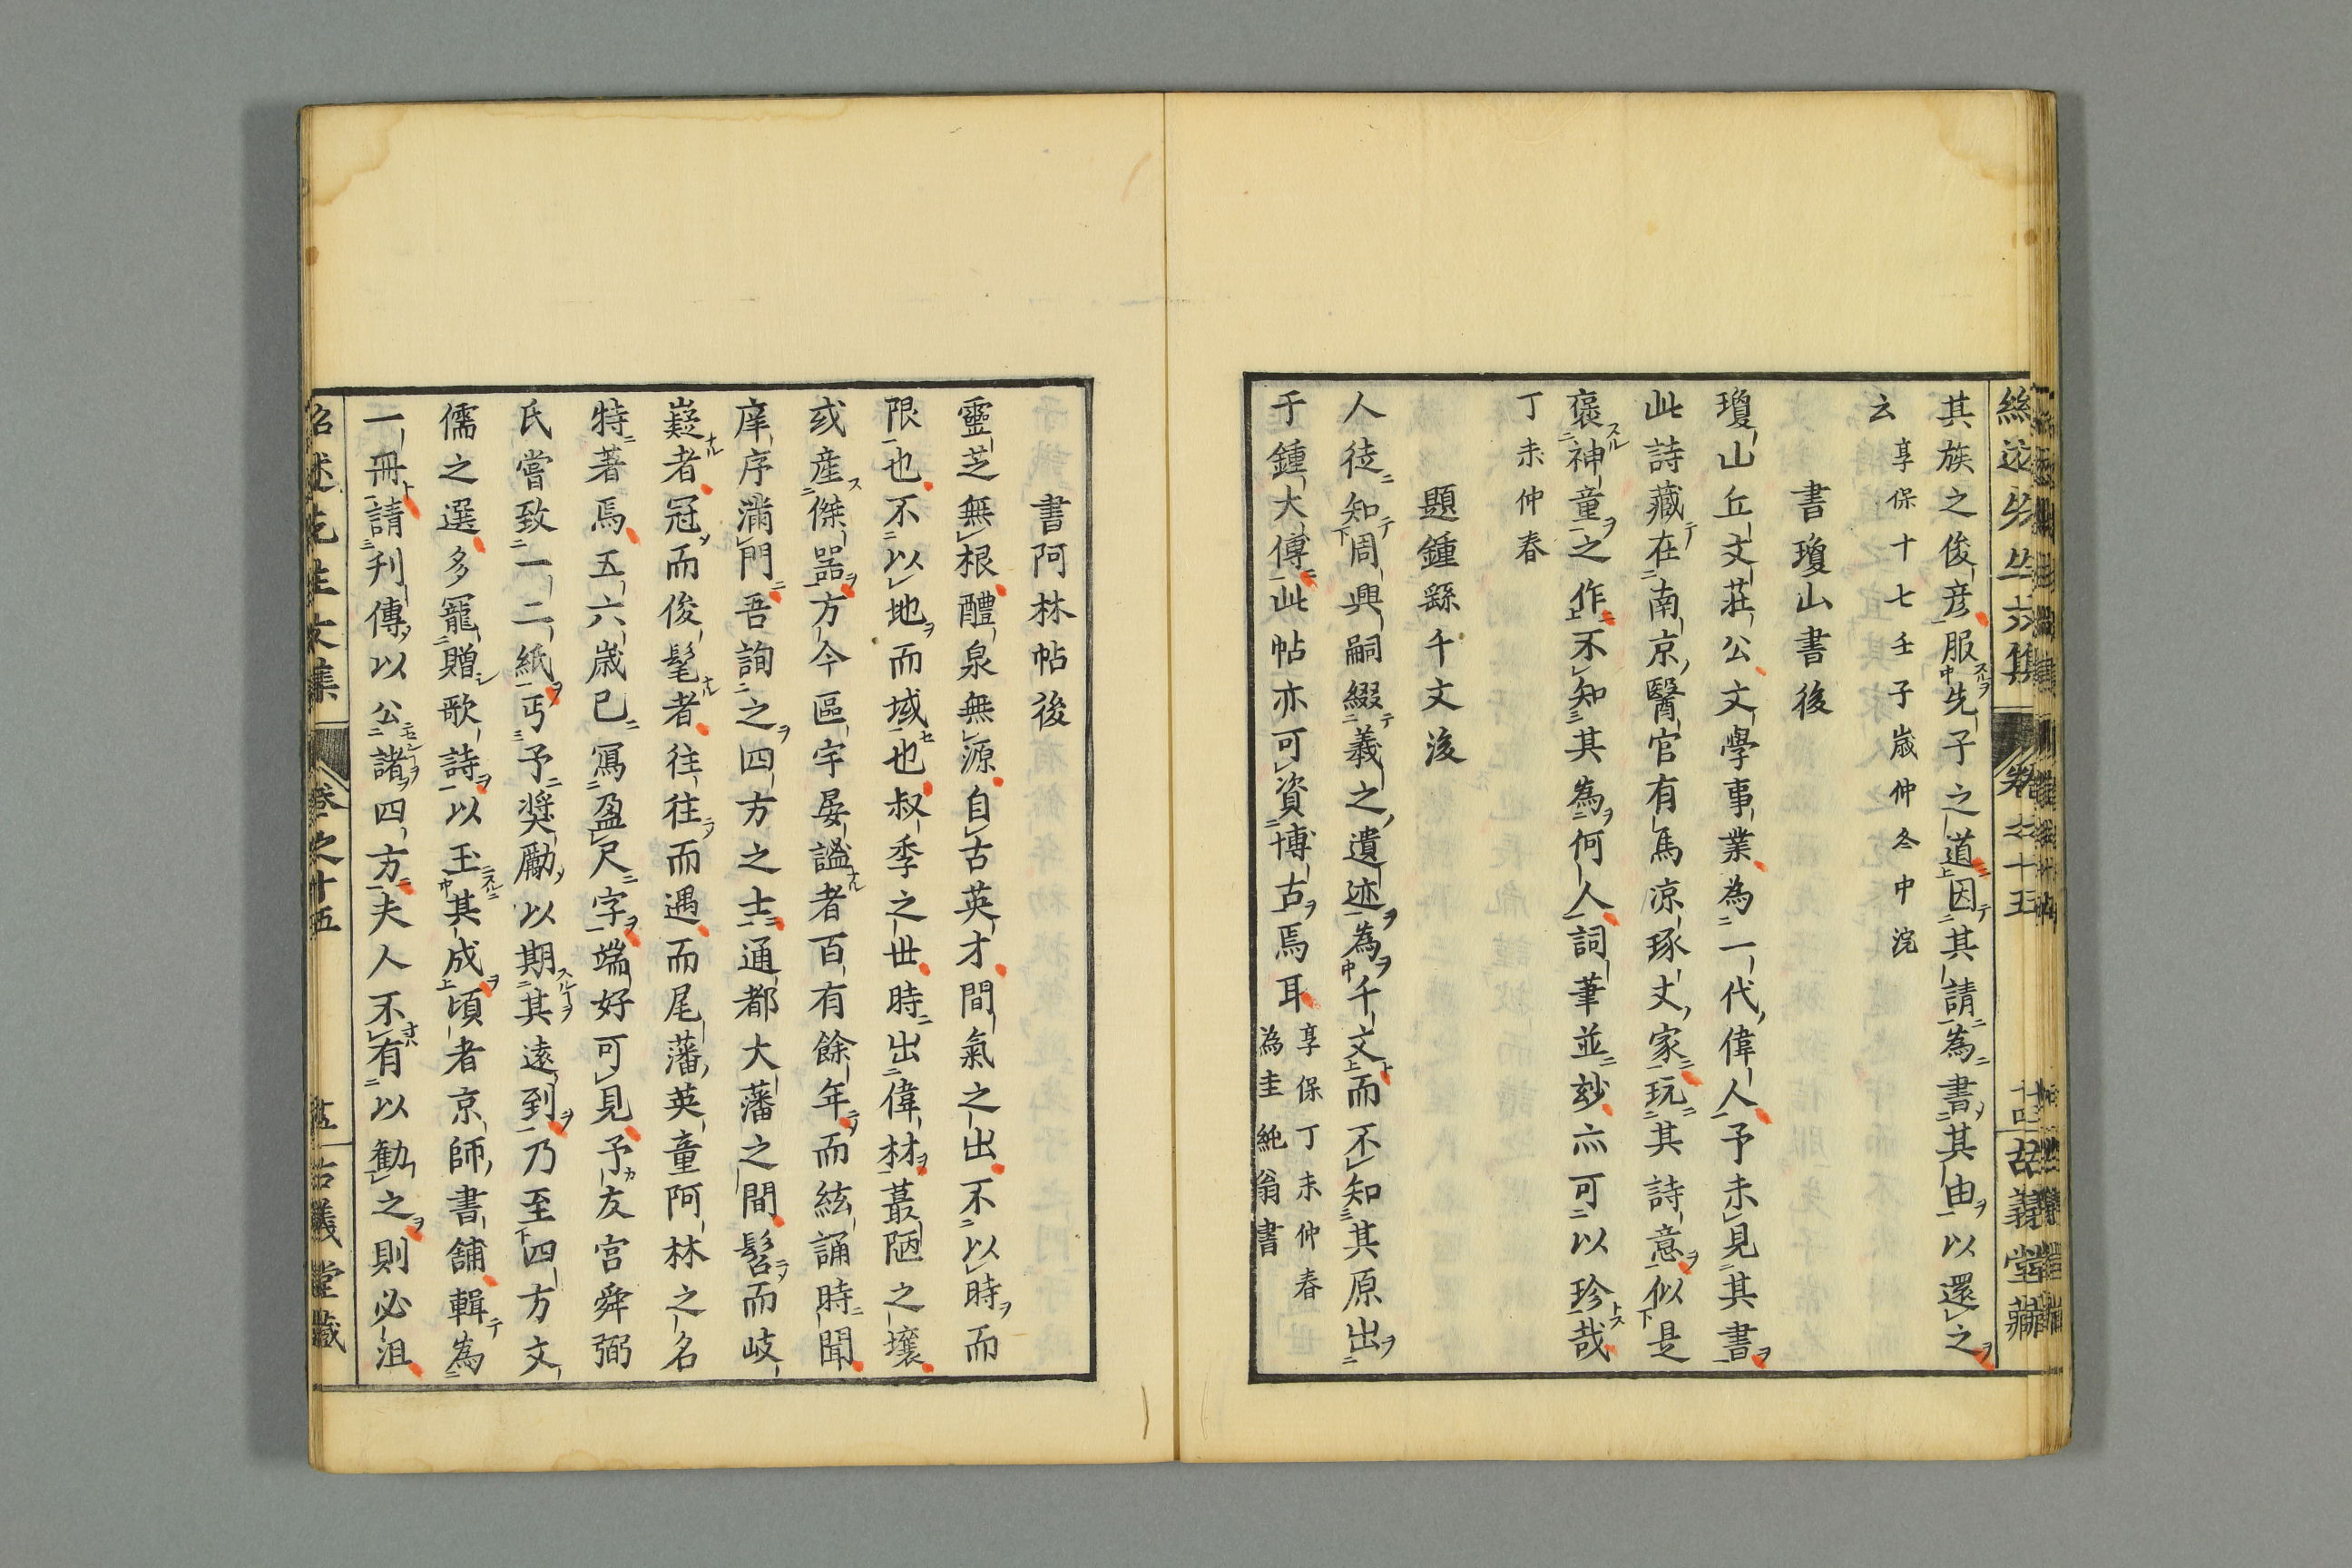 其族之俊彦服先子之道因其請為書其由以還之
云 享保十七壬子歳仲冬中浣
書瓊山書後
瓊山丘文莊公文學事業為一代偉人予未見其書
此詩藏在南京醫官有馬凉琢丈家玩其詩意似是
褒神童之作不知其為何人詞筆並玅亦可以珍哉
丁未仲春
題鍾繇千文後
人徒知周興嗣綴義之遺迹為千文而不知其原出
于鍾大傅此帖亦可資博古焉耳 享保丁未仲春
為圭純翁書
書阿林帖後
靈芝無根醴泉無源自古英才間氣之出不以時而
限也不以地而域也叔季之世時出偉材蕞陋之壤
或産傑器方今區宇晏謐者百有餘年而絃誦時聞
庠序滿門吾詢之四方之士通都大藩之間髫而岐
嶷者冠而俊髦者往往而遇而尾藩英童阿林之名
特著焉五六歳已寫盈尺字端好可見予友宮舜弼
氏嘗致一二紙丐予奬勵以期其遠到乃至四方文
儒之選多寵贈歌詩以玉其成頃者京師書舗輯為
一冊請刋傳以公諸四方夫人不有以勸之則必沮
紹述先生文集 卷之十五 古義堂藏